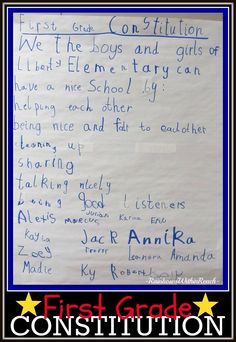 First Grade Constitution
We the boys and girls of
Liberty Elementary can
have a nice School by:
helping each other
being nice and fair to eachother
cleaning up
sharing
talking nicely
being good Listeners
Alexis Julian Karina Eric
Kayla Jack Annika
Zoey Leonora Amanda
Madie Ky Robert
~RainbowsWithinReach~
First Grade
CONSTITUTION